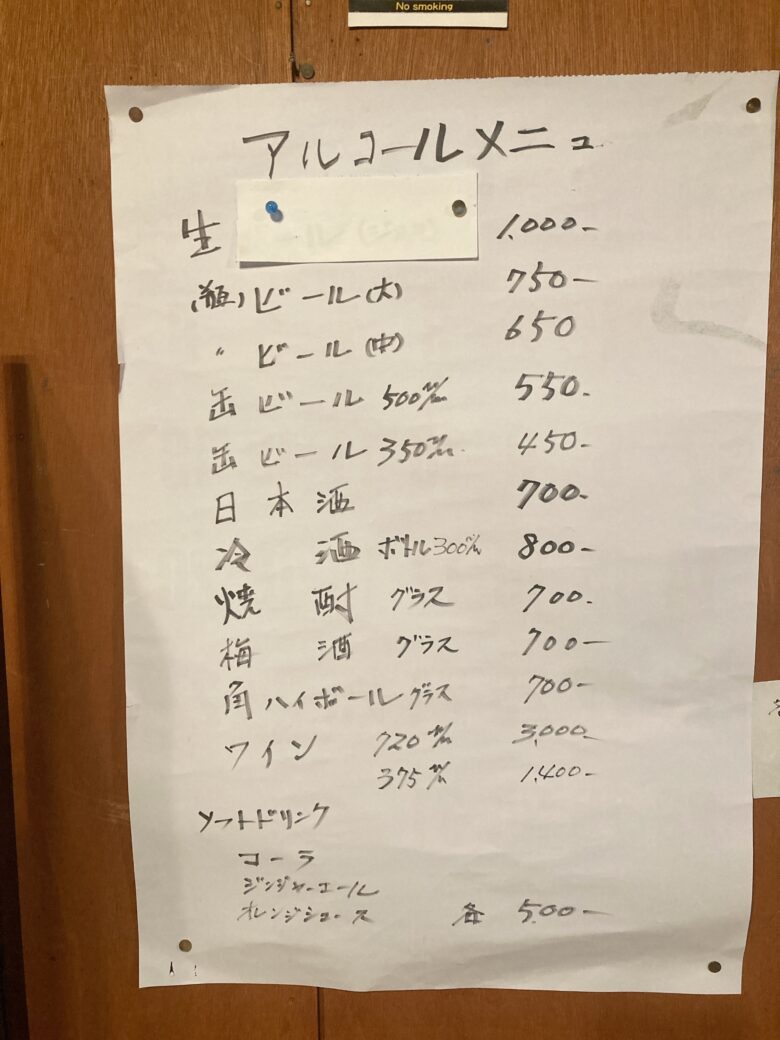 No smoking
アルコールメニュー
生 1,000-
(瓶)ビール(大) 750-
〃 ビール(中) 650
缶ビール 500m/m 550-
缶ビール 350m/m 450-
日本酒 700-
冷酒 ボトル300m/m 800-
焼酎 グラス 700-
梅酒 グラス 700-
角ハイボール グラス 700-
ワイン 720m/m 3,000-
375m/m 1,400-
ソフトドリンク
コーラ
ジンジャーエール
オレンジジュース 各 500-